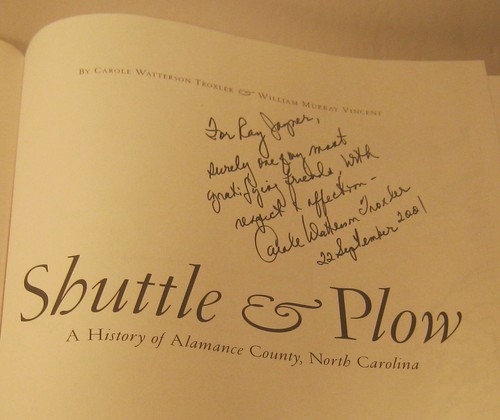 BY CAROLE WATTERSON TROXLER & WILLIAM MURRAY VINCENT
For Ray
surely one of my most
gratifying friends, with
respect & affection –
Carole Watterson Troxler
22 September 2001
Shuttle & Plow
A History of Alamance County, North Carolina